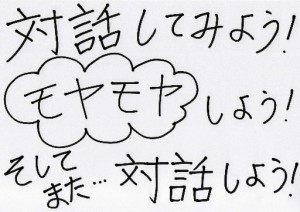 対話してみよう!
モヤモヤしよう!
そして
また…対話しよう!